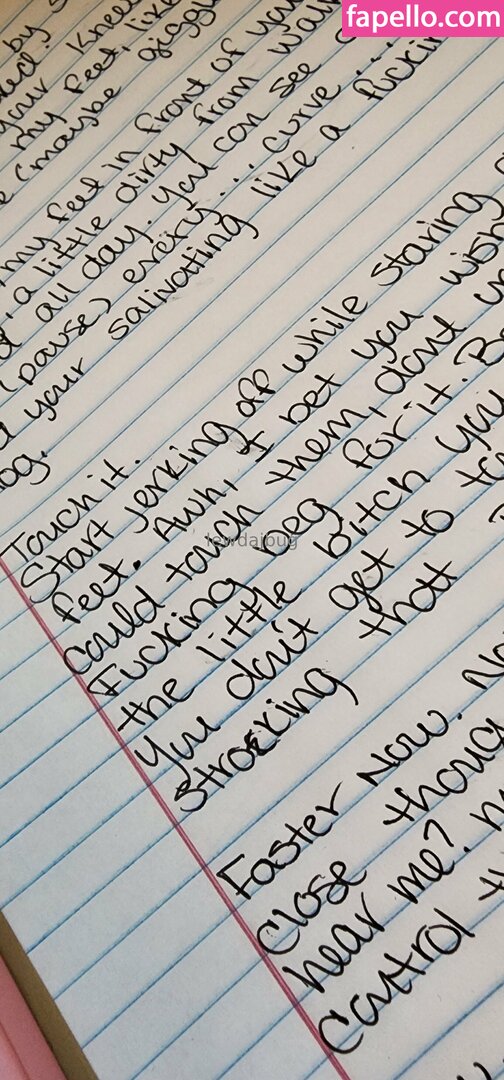 fapello.com
by
your knee
my feet, like
e (maybe giggl
my feet in front of you
a little dirty from walk
all day. You can see
(pause) every... curve...
your salivating like a fuckin
og.
Touch it.
Start jerking off while staring
feet. Awh, I bet you wish
could touch them, dont
Fucking beg for it. B
the little bitch you
You don't get to
strocking that
lewdajbug
Faster Now. No
close thoug
hear me?
control